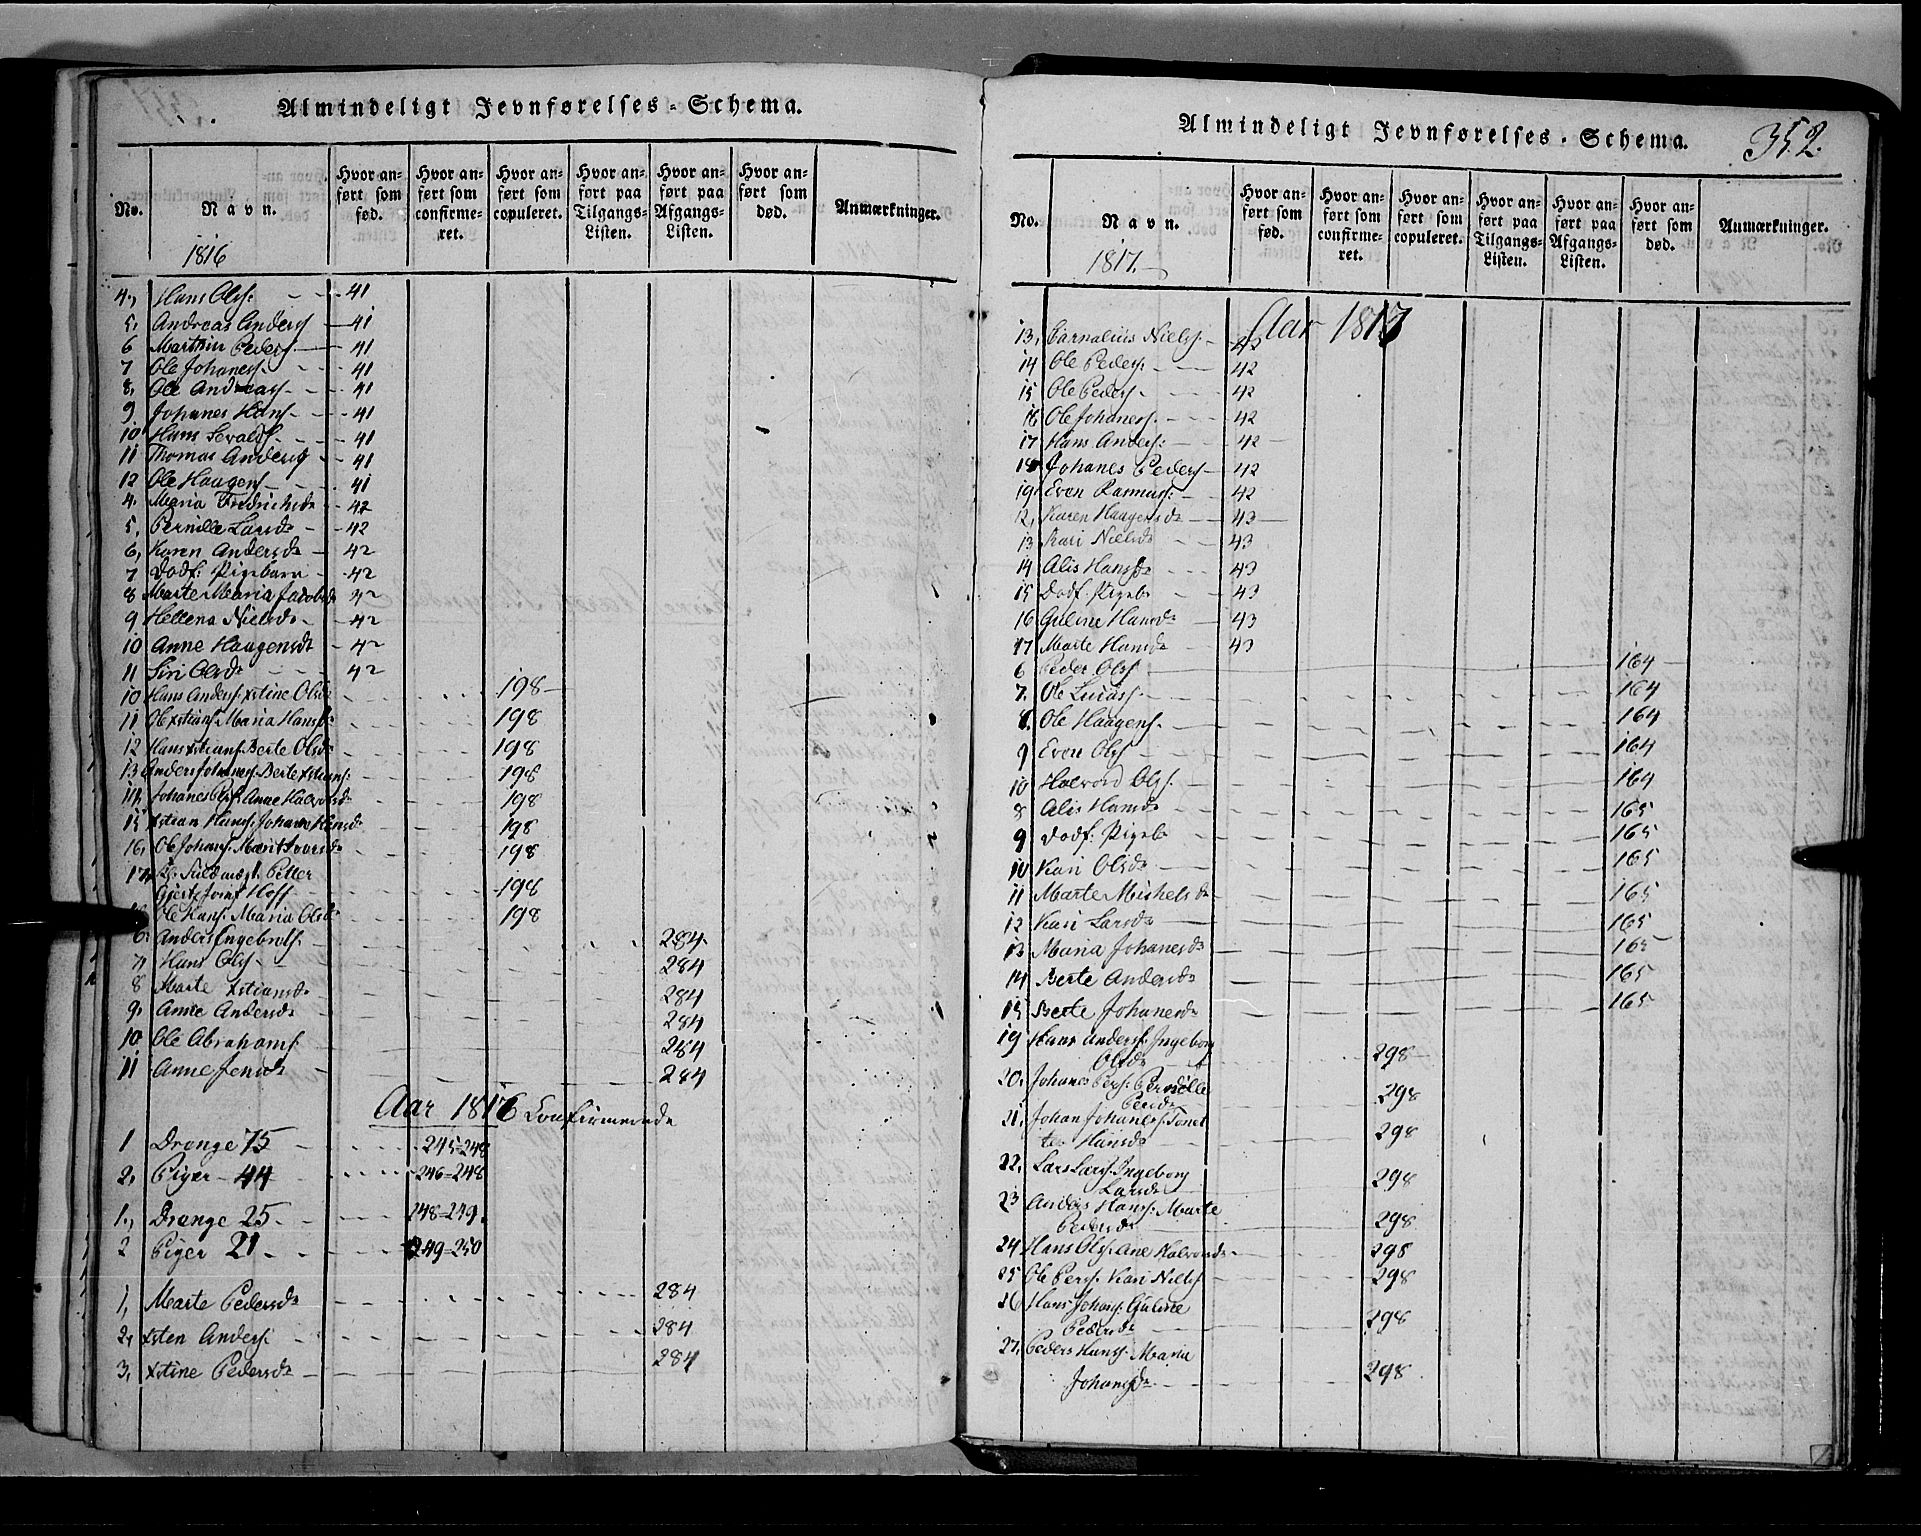 Almindeligt Jevnførelses-Schema.
No. Navn. Hvor anført som fød. Hvor anført som confirmeret. Hvor anført som copuleret. Hvor anført paa Tilgangs-Listen. Hvor anført paa Afgangs-Listen. Hvor anført som død. Anmærkninger.
1816
4, Hans Ols: 41
5, Andreas Anders 41
6 Marthin Peders. 41
7 Ole Johanes. 41
8, Ole Andreas. 41
9 Johanes Hans 41
10 Hans Sevalds. 41
11 Thomas Anders 41
12 Ole Haagens 41
4. Maria Fredrichsdr 42
5, Pernille Larsdr 42
6, Karen Andersdr 42
7 Dødf: Pigebarn 42
8 Marte Maria Jacobsdr 42
9 Hellena Nielsdr 42
10 Anne Haagensdr 42
11 Siri Olsdr 42
10 Hans Anders: Xstine Olsdr 198
11 Ole Xstians. Maria Hansdr 198
12 Hans Xstians. Berte Olsdr 198
13 Anders Johanes. Berte Xstians: 198
14, Johanes Ols: Anne Halvorsdr 198
15 Xstian Hans: Johane Hansdr 198
16, Ole Johans: Marit Iversdr 198
17, Petter
Hoff 198
Ole Hans: Maria Olsdr 198
6, Anders Engebrets. 284
7, Hans Ols. 284
8 Marte Xstiansdr 284
9, Anne Andersdr 284
10 Ole Abrahams. 284
11 Anne Jensdr 284
Aar 1816 Confirmerede
1 Drenge 75 245=248
2, Piger 44 246=248
1, Drenge 25 248=249.
2 Piger 21 249=250
1, Marte Pedersdr 284
2, Xsten Anders: 284
3, Xstine Pedersdr 284
Almindeligt Jevnførelses-Schema. 352.
No. Navn. Hvor anført som fød. Hvor anført som confirmeret. Hvor anført som copuleret. Hvor anført paa Tilgangs-Listen. Hvor anført paa Afgangs-Listen. Hvor anført som død. Anmærkninger.
1817.
Aar 1817
13, Carnalius Niels. 42
14 Ole Peders. 42
15 Ole Peders. 42
16 Ole Johanes. 42
17 Hans Anders: 42
18 Johanes Peders 42
19. Even Rasmus: 42
12, Karen Haagensdr 43
13 Kari Nielsdr 43
14 Alis Hansdr 43
15 Dødf. Pigeb 43
16 Guline Hansdr 43
17 Marte Hansdr 43
6 Peder Ols. 164
7. Ole Lucas. 164
8. Ole Haagens. 164
9 Even Ols 164
10 Halvord Ols. 164
8 Alis Hansdr 165
9 Dødf. Pigeb 165
10 Kari Olsdr 165
11 Marte Michelsdr 165
12 Kari Larsdr 165
13 Maria Johanesdr 165
14 Berte Andersdr 165
15 Berte Johanesdr 165
19 Hans Anders. Ingeborg
Olsdr 298
20. Johanes Pers: Pernille
Persdr 298
21. Johan Johanes: Tonet
te Hansdr 298
22, Lars Lars. Ingeborg
Larsdr 298
23 Anders Hans: Marte
Pedersdr 298
24 Hans Ols: Ane Halvorsdr 298
25 Ole Pers. Kari Niels 298
26 Hans Johans: Guline
Pedersdr 298
27. Peders Hans: Maria
Johansdr 298